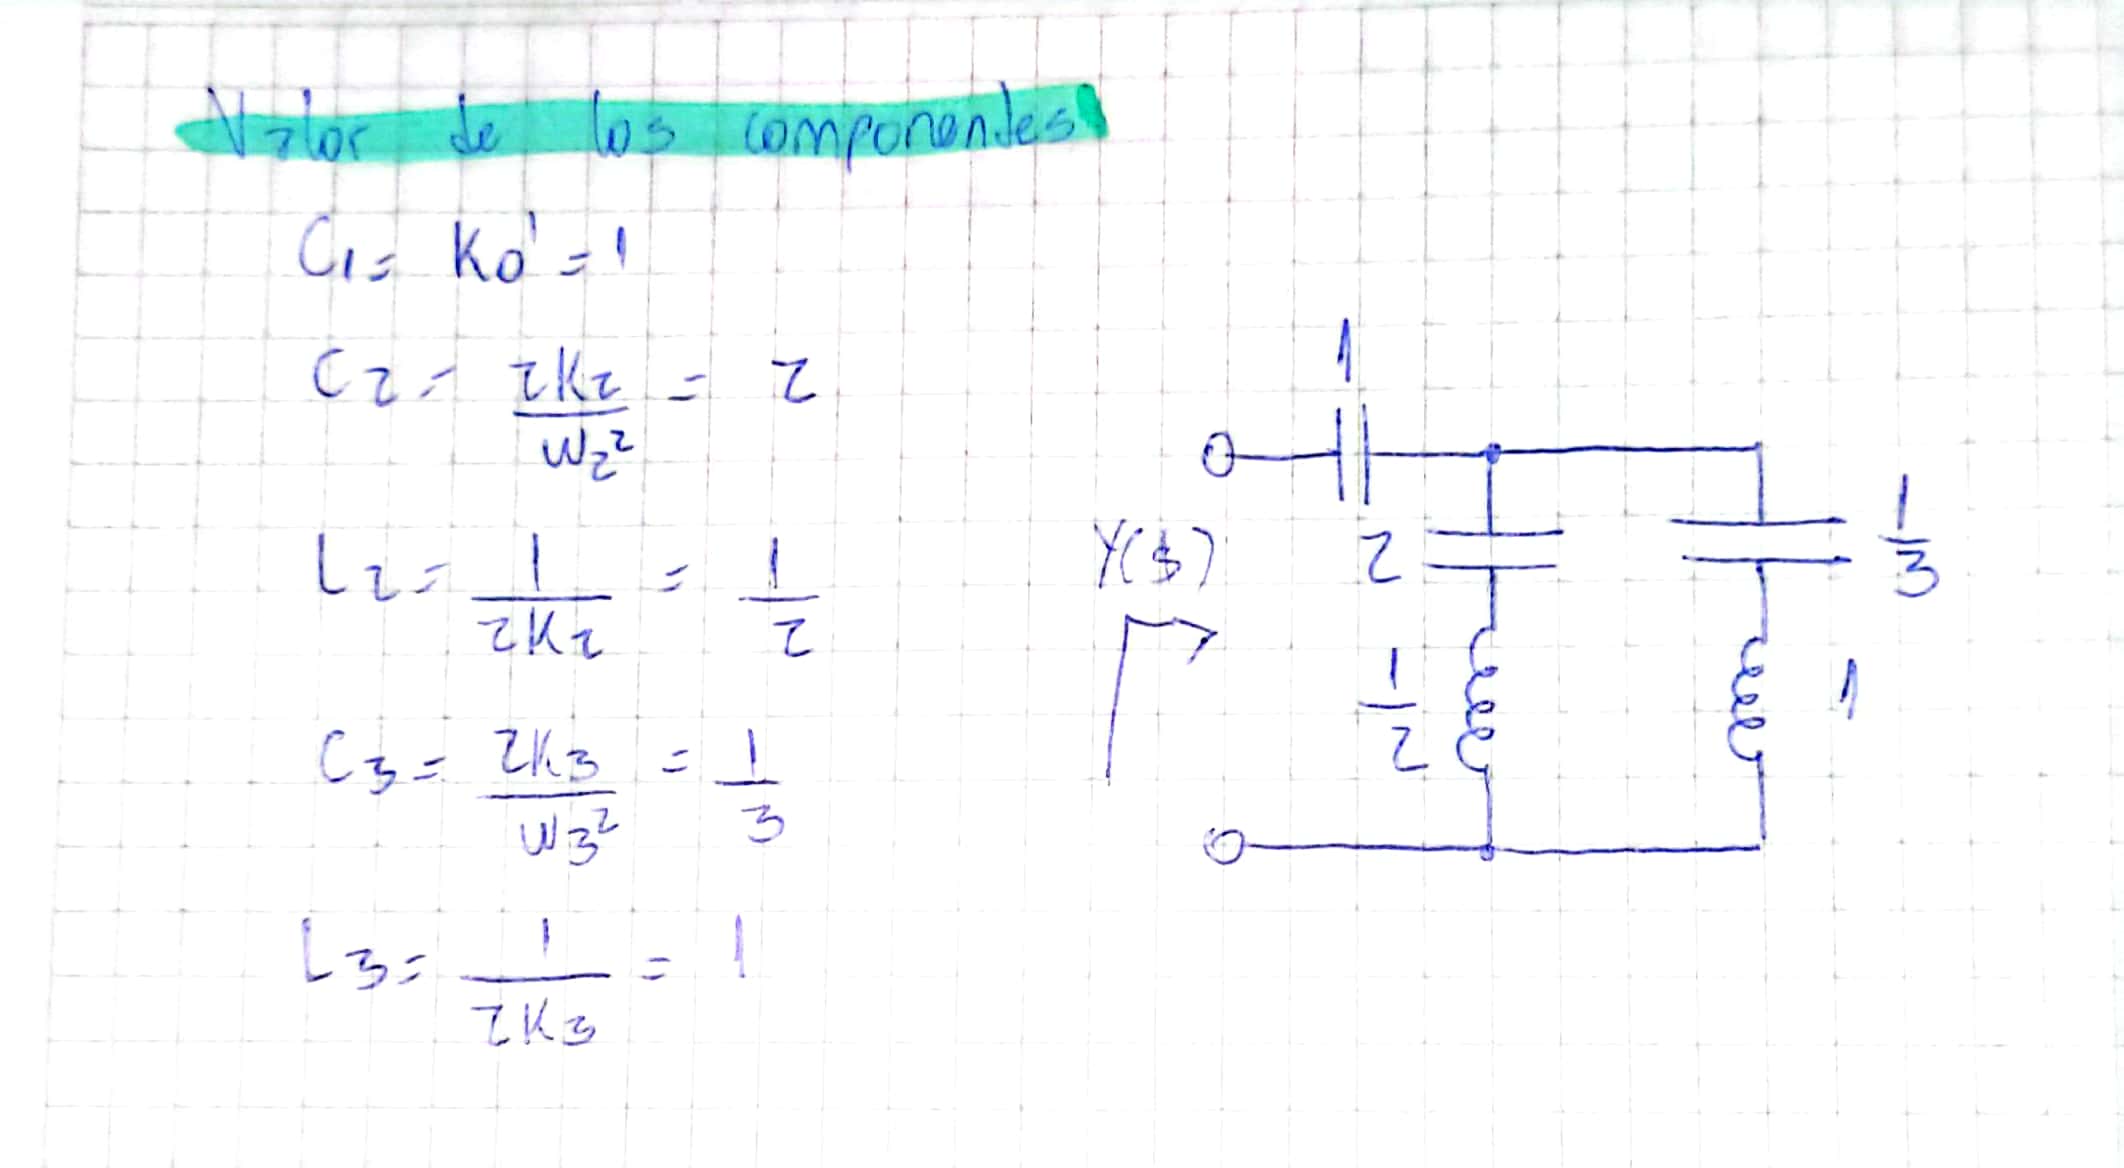 Valor de los componentes
C1 = K0' = 1
C2 = 2K2/W2² = 2
L2 = 1/2K2 = 1/2
C3 = 2K3/W3² = 1/3
L3 = 1/2K3 = 1
1
Y($)
2
1/3
1/2
1